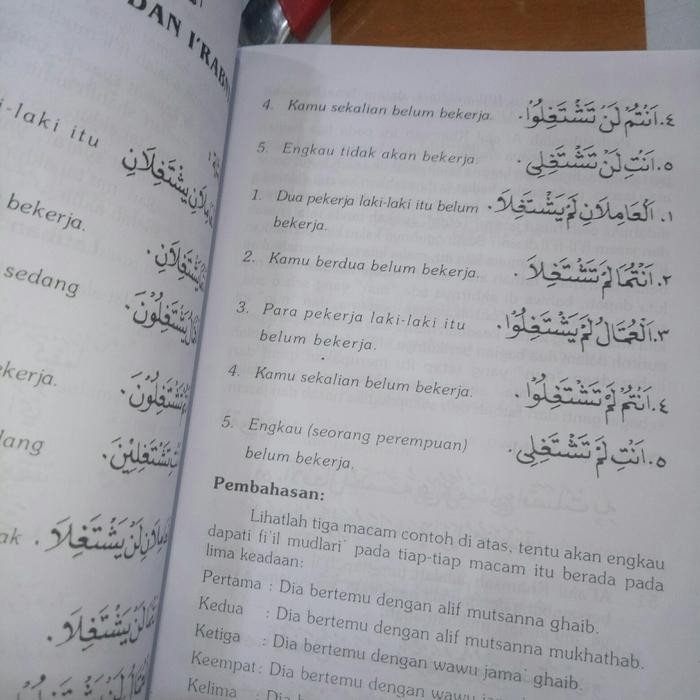 DAN I'RABN
i-laki itu
يَشْتَغِلَانِ
bekerja.
sedang
يَشْتَغِلُوْنَ.
kerja.
تَشْتَغِلُوْنَ.
dang
تَشْتَغِلِيْنَ.
ak
لَنْ يَشْتَغِلَا.
4. Kamu sekalian belum bekerja. ٤. اَنْتُمْ لَنْ تَشْتَغِلُوْا.
5. Engkau tidak akan bekerja. ٥. اَنْتِ لَنْ تَشْتَغِلِى.
1. Dua pekerja laki-laki itu belum ١. اَلْعَامِلَانِ لَمْ يَشْتَغِلَا.
bekerja.
2. Kamu berdua belum bekerja. ٢. اَنْتُمَا لَمْ تَشْتَغِلَا.
3. Para pekerja laki-laki itu ٣. اَلْعُمَّالُ لَمْ يَشْتَغِلُوْا.
belum bekerja.
4. Kamu sekalian belum bekerja. ٤. اَنْتُمْ لَمْ تَشْتَغِلُوْا.
5. Engkau (seorang perempuan) ٥. اَنْتِ لَمْ تَشْتَغِلِى.
belum bekerja.
Pembahasan:
Lihatlah tiga macam contoh di atas, tentu akan engkau
dapati fi'il mudlari' pada tiap-tiap macam itu berada pada
lima keadaan:
Pertama : Dia bertemu dengan alif mutsanna ghaib.
Kedua : Dia bertemu dengan alif mutsanna mukhathab.
Ketiga : Dia bertemu dengan wawu jama' ghaib.
Keempat : Dia bertemu dengan wawu
Kelima : Dia